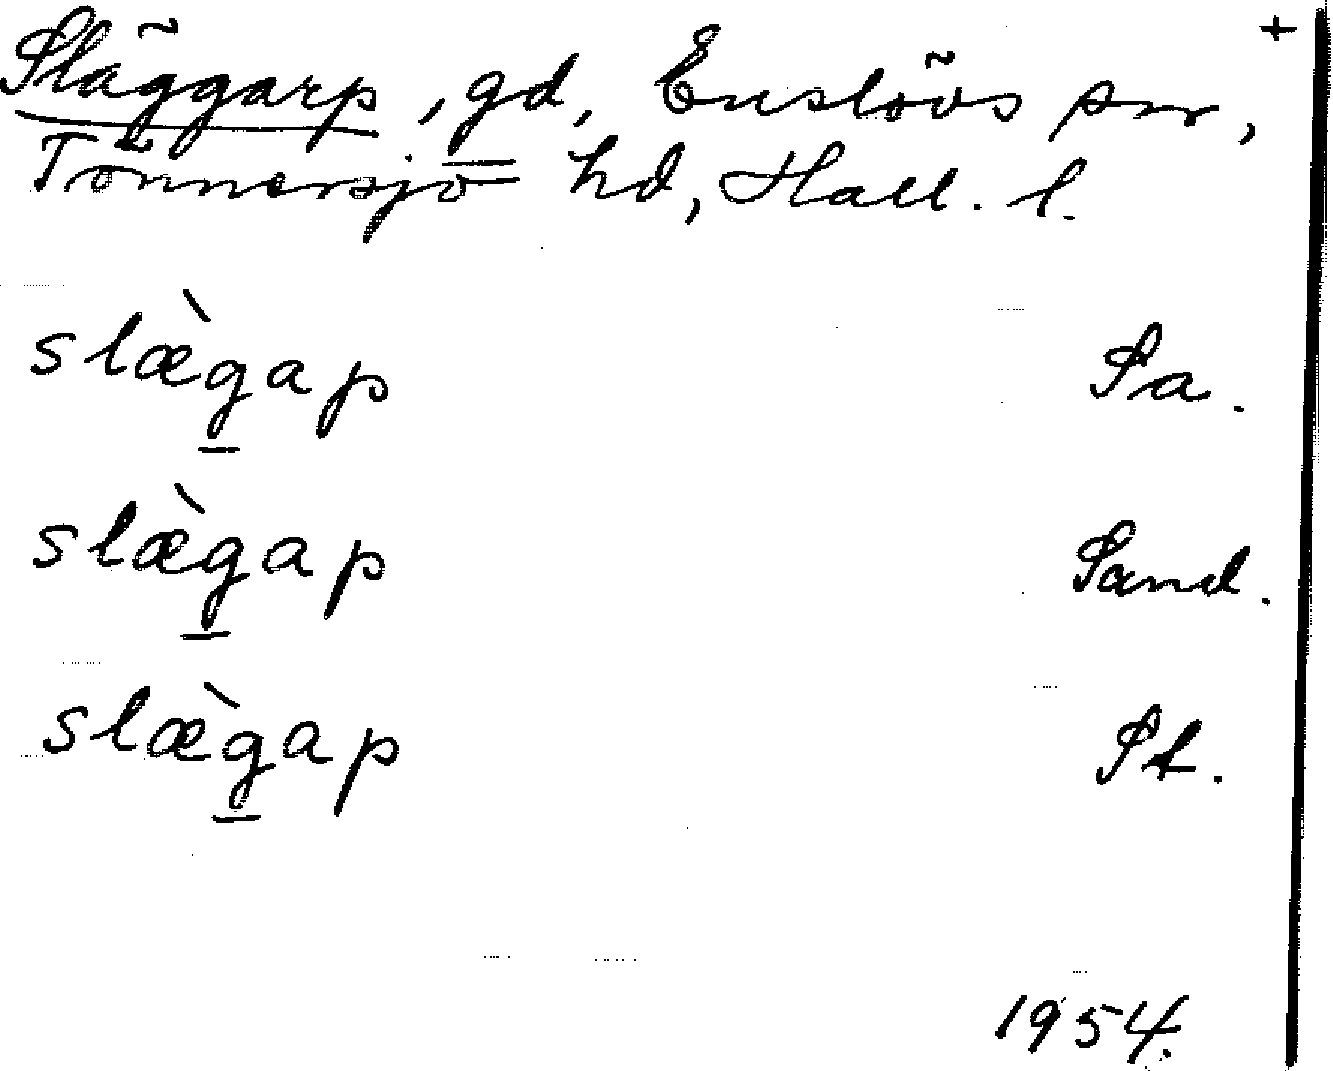 +
Släggarp, gd, Enslövs sn,
Tönnersjö hd, Hall. l.
slæ̀g̲ap Sa.
slæ̀g̲ap Sand.
slæ̀g̲ap St.
1954.